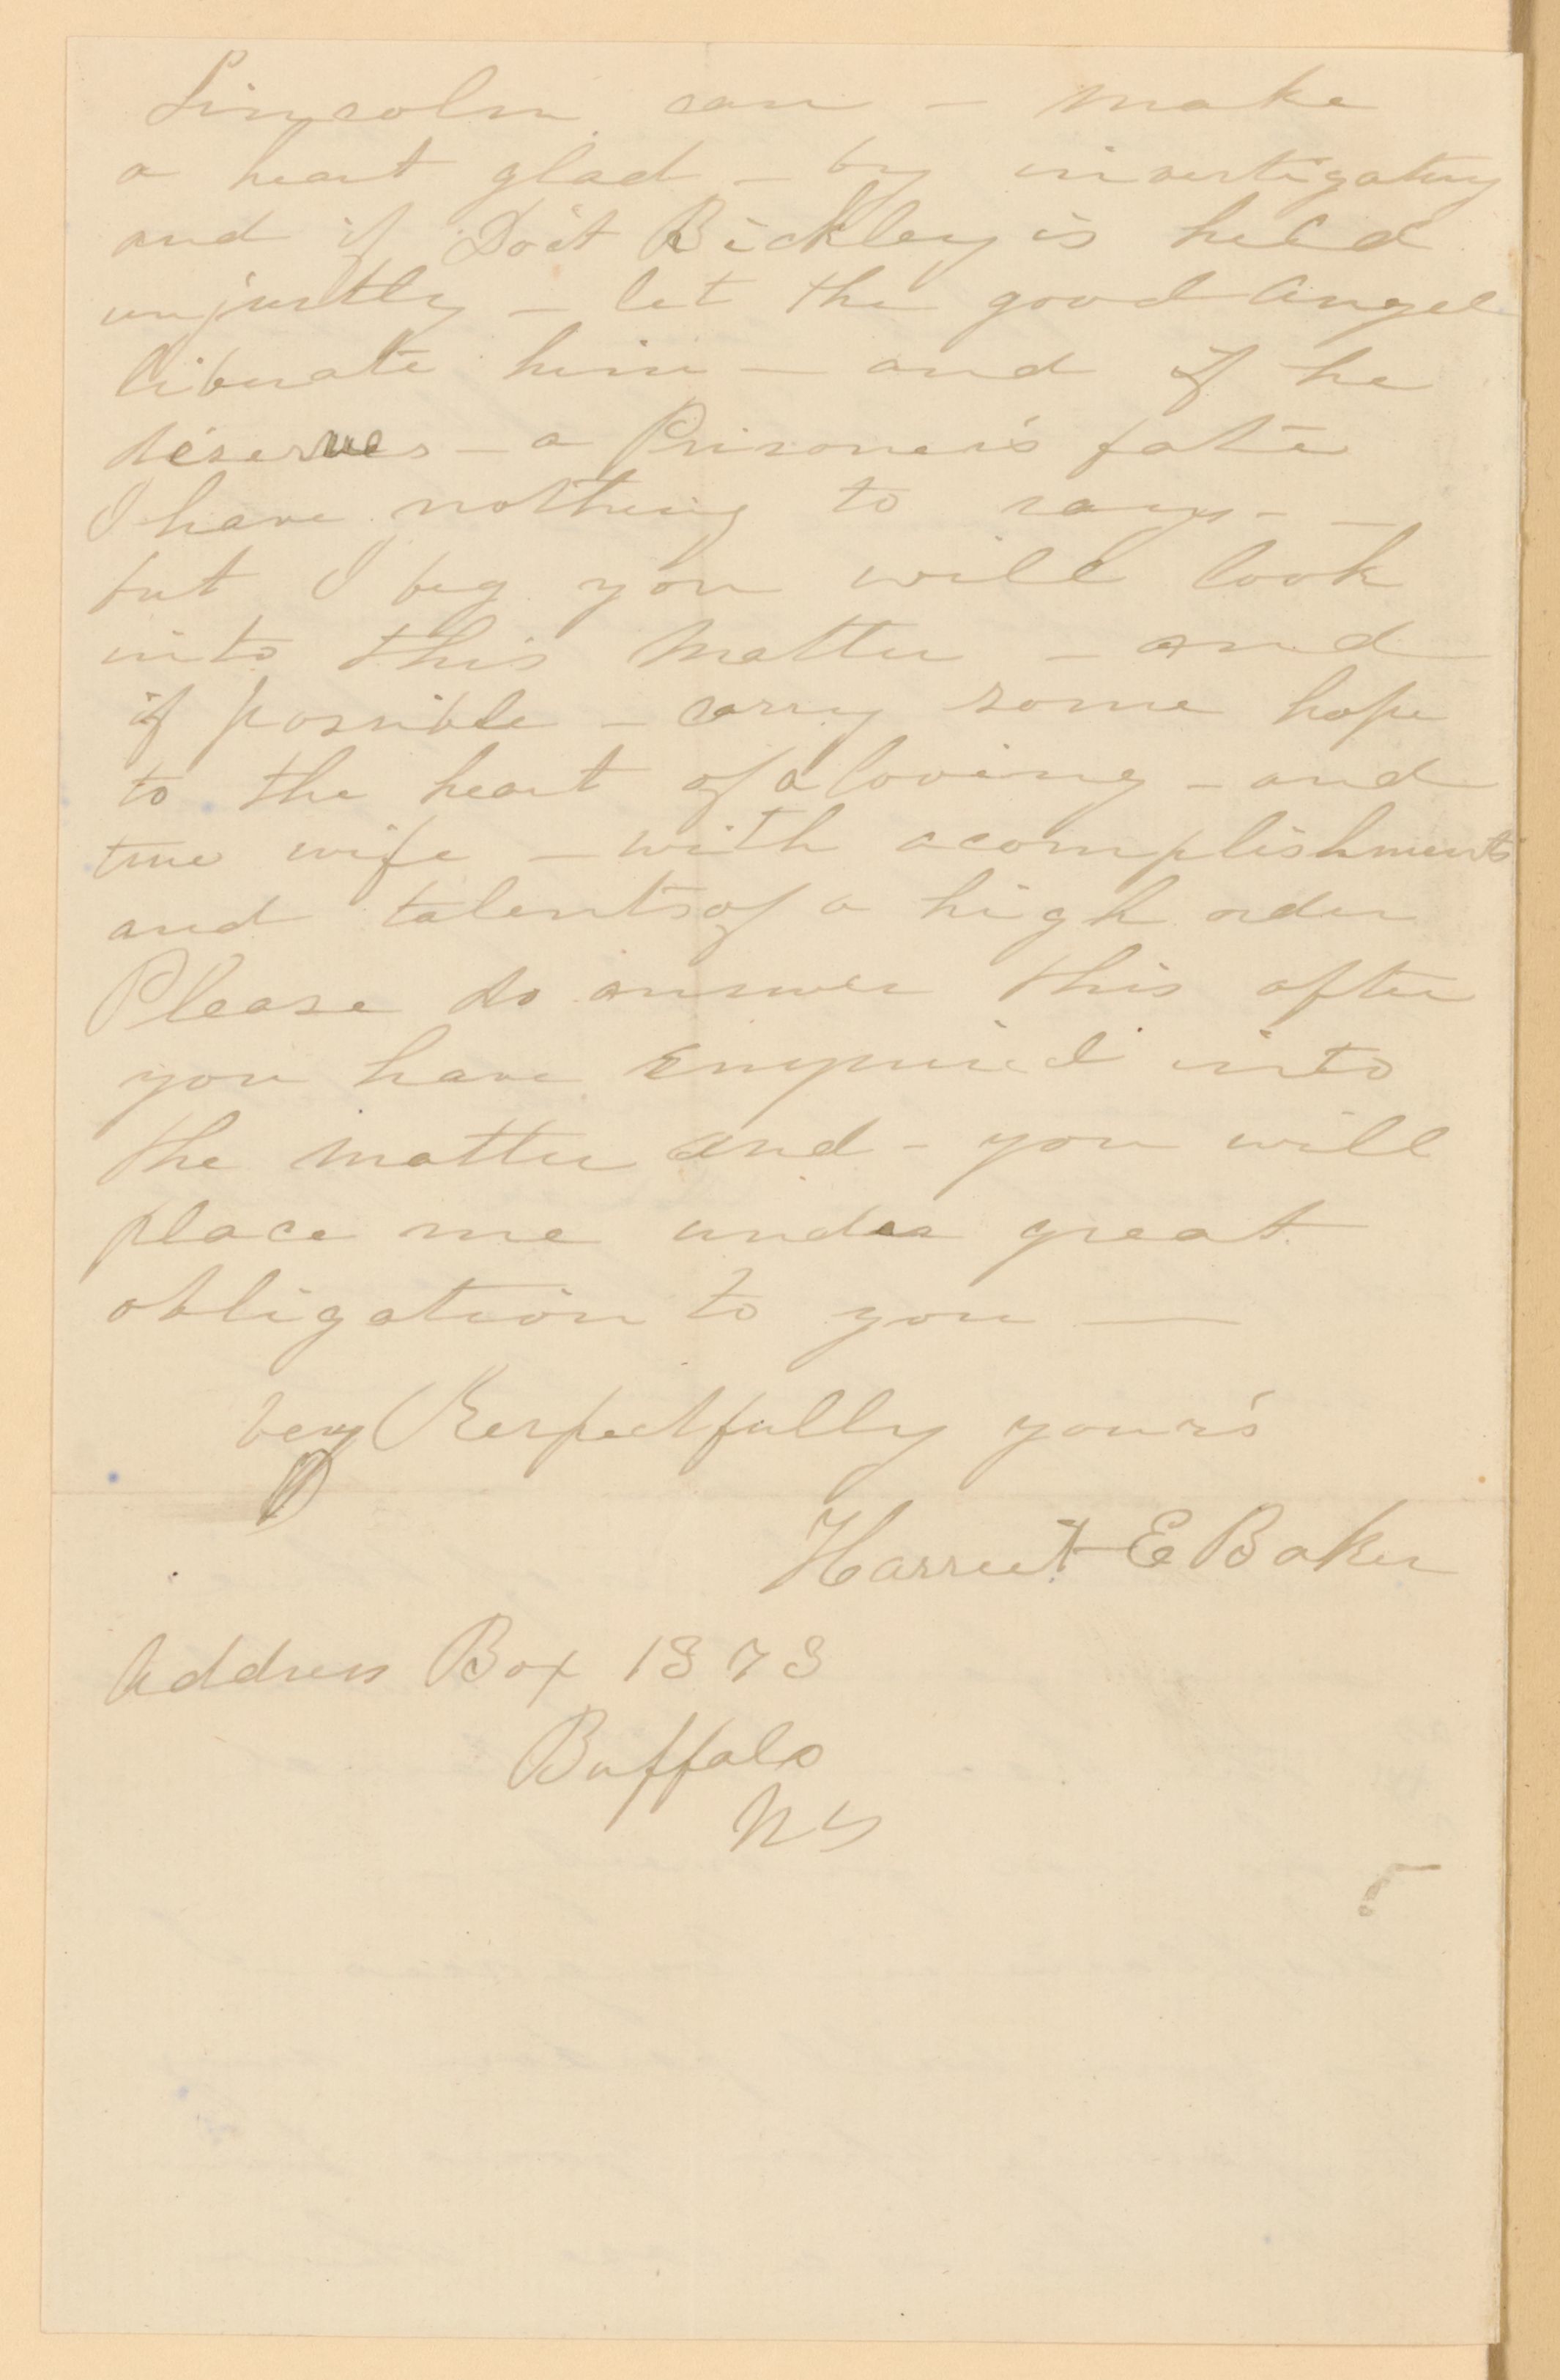 Lincoln can - make
a heart glad - by investigating
and if Doct Bickley is held
unjustly - let the good Angel
liberate him - and if he
deserves - a Prisoner's fate
I have nothing to say - -
but I beg you will look
into this matter - and
if possible - carry some hope
to the heart of a loving - and
true wife - with acomplishments
and talents of a high order
Please do answer this after
you have enquired into
the matter and - you will
place me under great
obligation to you —
Very Respectfully your's
Harriet E Baker
Address Box 1373
Buffalo
NY